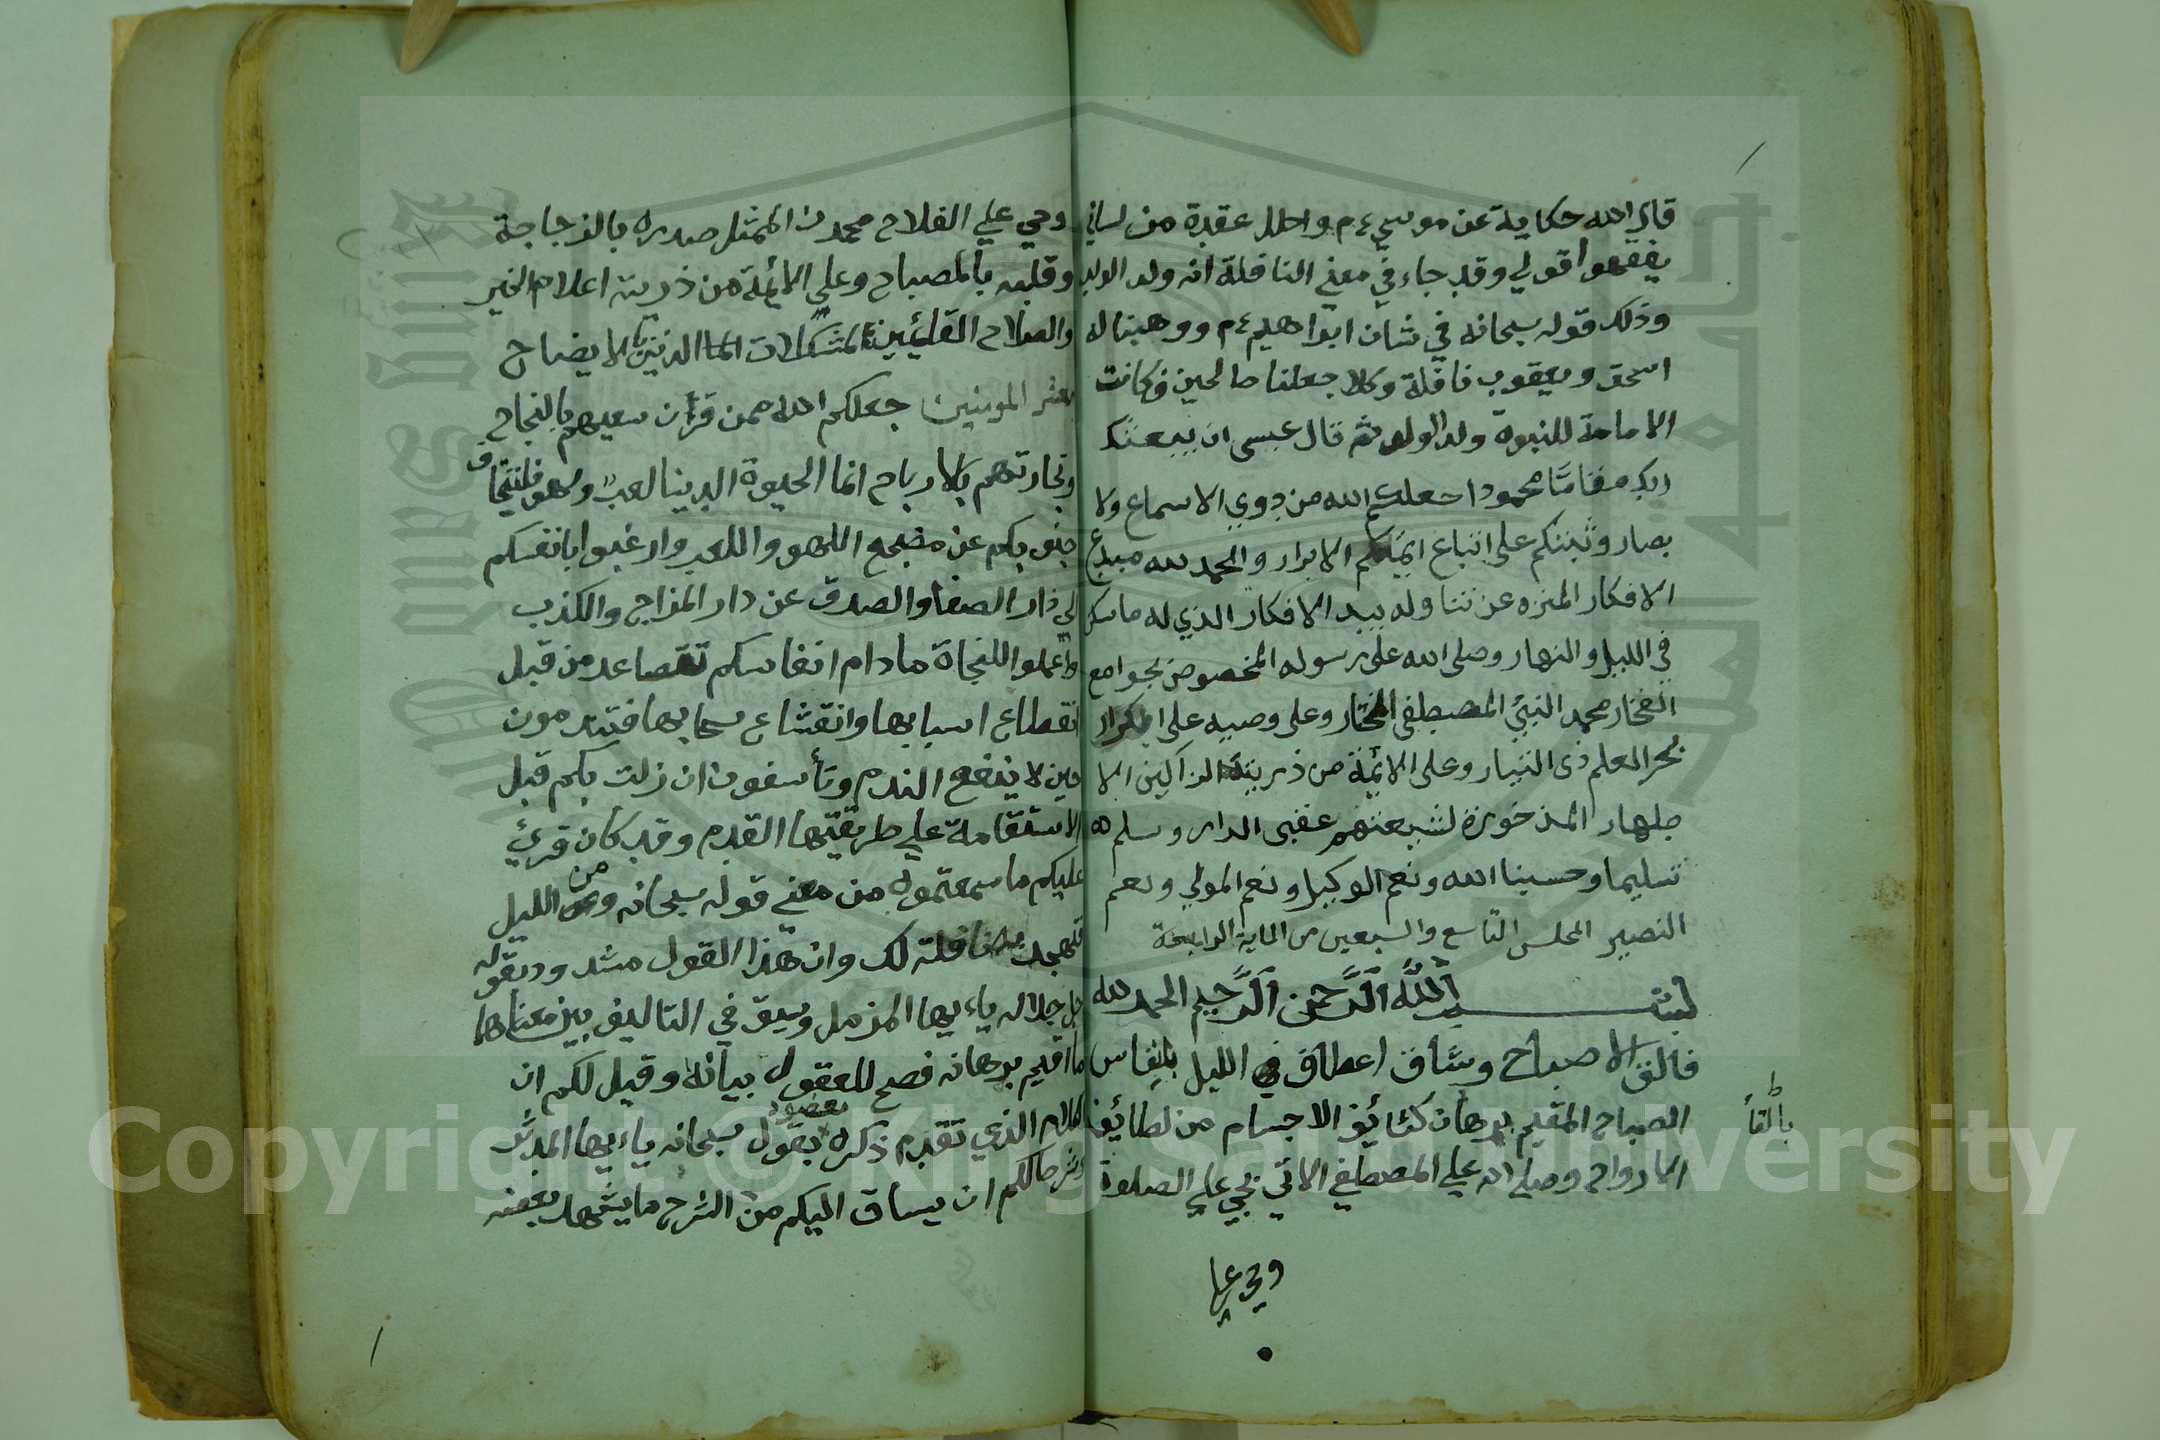 قال الله حكاية عن موسي ع م واحلل عقدة من لساني
يفقهوا قولي وقد جاء في معني النافلة انه ولد الولد
وذلك قوله سبحانه في شان ابراهيم ع م ووهبنا له
اسحق ويعقوب نافلة وكلا جعلنا صالحين فكانت
الامامة للنبوة ولد الولد ثم قال عسى ان يبعثك
ربك مقامًا محمودا جعلكم الله من ذوي الاسماع ولا
بصار وثبتكم على اتباع ايمتكم الابرار والحمد لله مبدع
الافكار المنزه عن تناوله بيد الافكار الذي له ما سكن
في الليل والنهار وصلى الله على رسوله المخصوص بجوامع
الفخار محمد النبيّ المصطفى المختار وعلى وصيه علي الكرار
بحر العلم ذى التيار وعلى الائمة من ذريته الزاكين الا
طهار المذخورة لشيعتهم عقبى الدار وسلم
تسليما وحسبنا الله ونعم الوكيل ونعم المولي ونعم
النصير المجلس التاسع والسبعين من الماية الرابعة
بسم الله الرحمن الرحيم الحمد لله
فالق الاصباح وشاق اعطاف الليل بانفاس
الصباح المقيم برهان كثايف الاجسام من لطائف
الارواح وصلى الله علي المصطفي الاتي بحي علي الصلوة
بالقا
وحي علي
وحي علي الفلاح محمد ن الممثل صدره بالزجاجة
وقلبه بالمصباح وعلي الائمة من ذريته اعلام الخير
والصلاح القائمين لمشكلات الدين بالايضاح
معشر المومنين جعلكم الله ممن قرن سعيهم بالنجاح
وتجارتهم بالارباح انما الحيوة الدنيا لعب ولهو فلتتجاف
جنوبكم عن مضجع اللهو واللعب وارغبوا بانفسكم
الي دار الصفا والصدق عن دار المزاج والكذب
واعملوا للنجاة ما دام انفاسكم تتصاعد من قبل
انقطاع اسبابها وانقشاع سحابها فتندمون
حين لا ينفع الندم وتأسفون ان زلت بكم قبل
الاستقامة علي طريقتها القدم وقد كان قرئ
عليكم ما سمعتموه من معني قوله سبحانه ومن الليل
فتهجد به نافلة لك وان هذا القول مشدود بقوله
جل جلاله ياءيها المزمل وسيق في التاليف بين معناها
ما اقيم برهانه فصح للعقول بيانه وقيل لكم ان
الكلام الذي تقدم ذكره معضود بقول سبحانه ياءيها المدثر
وشرط لكم ان يساق اليكم من الشرح ما يشهد بعضه
Copyright © King Saud University
King Saud